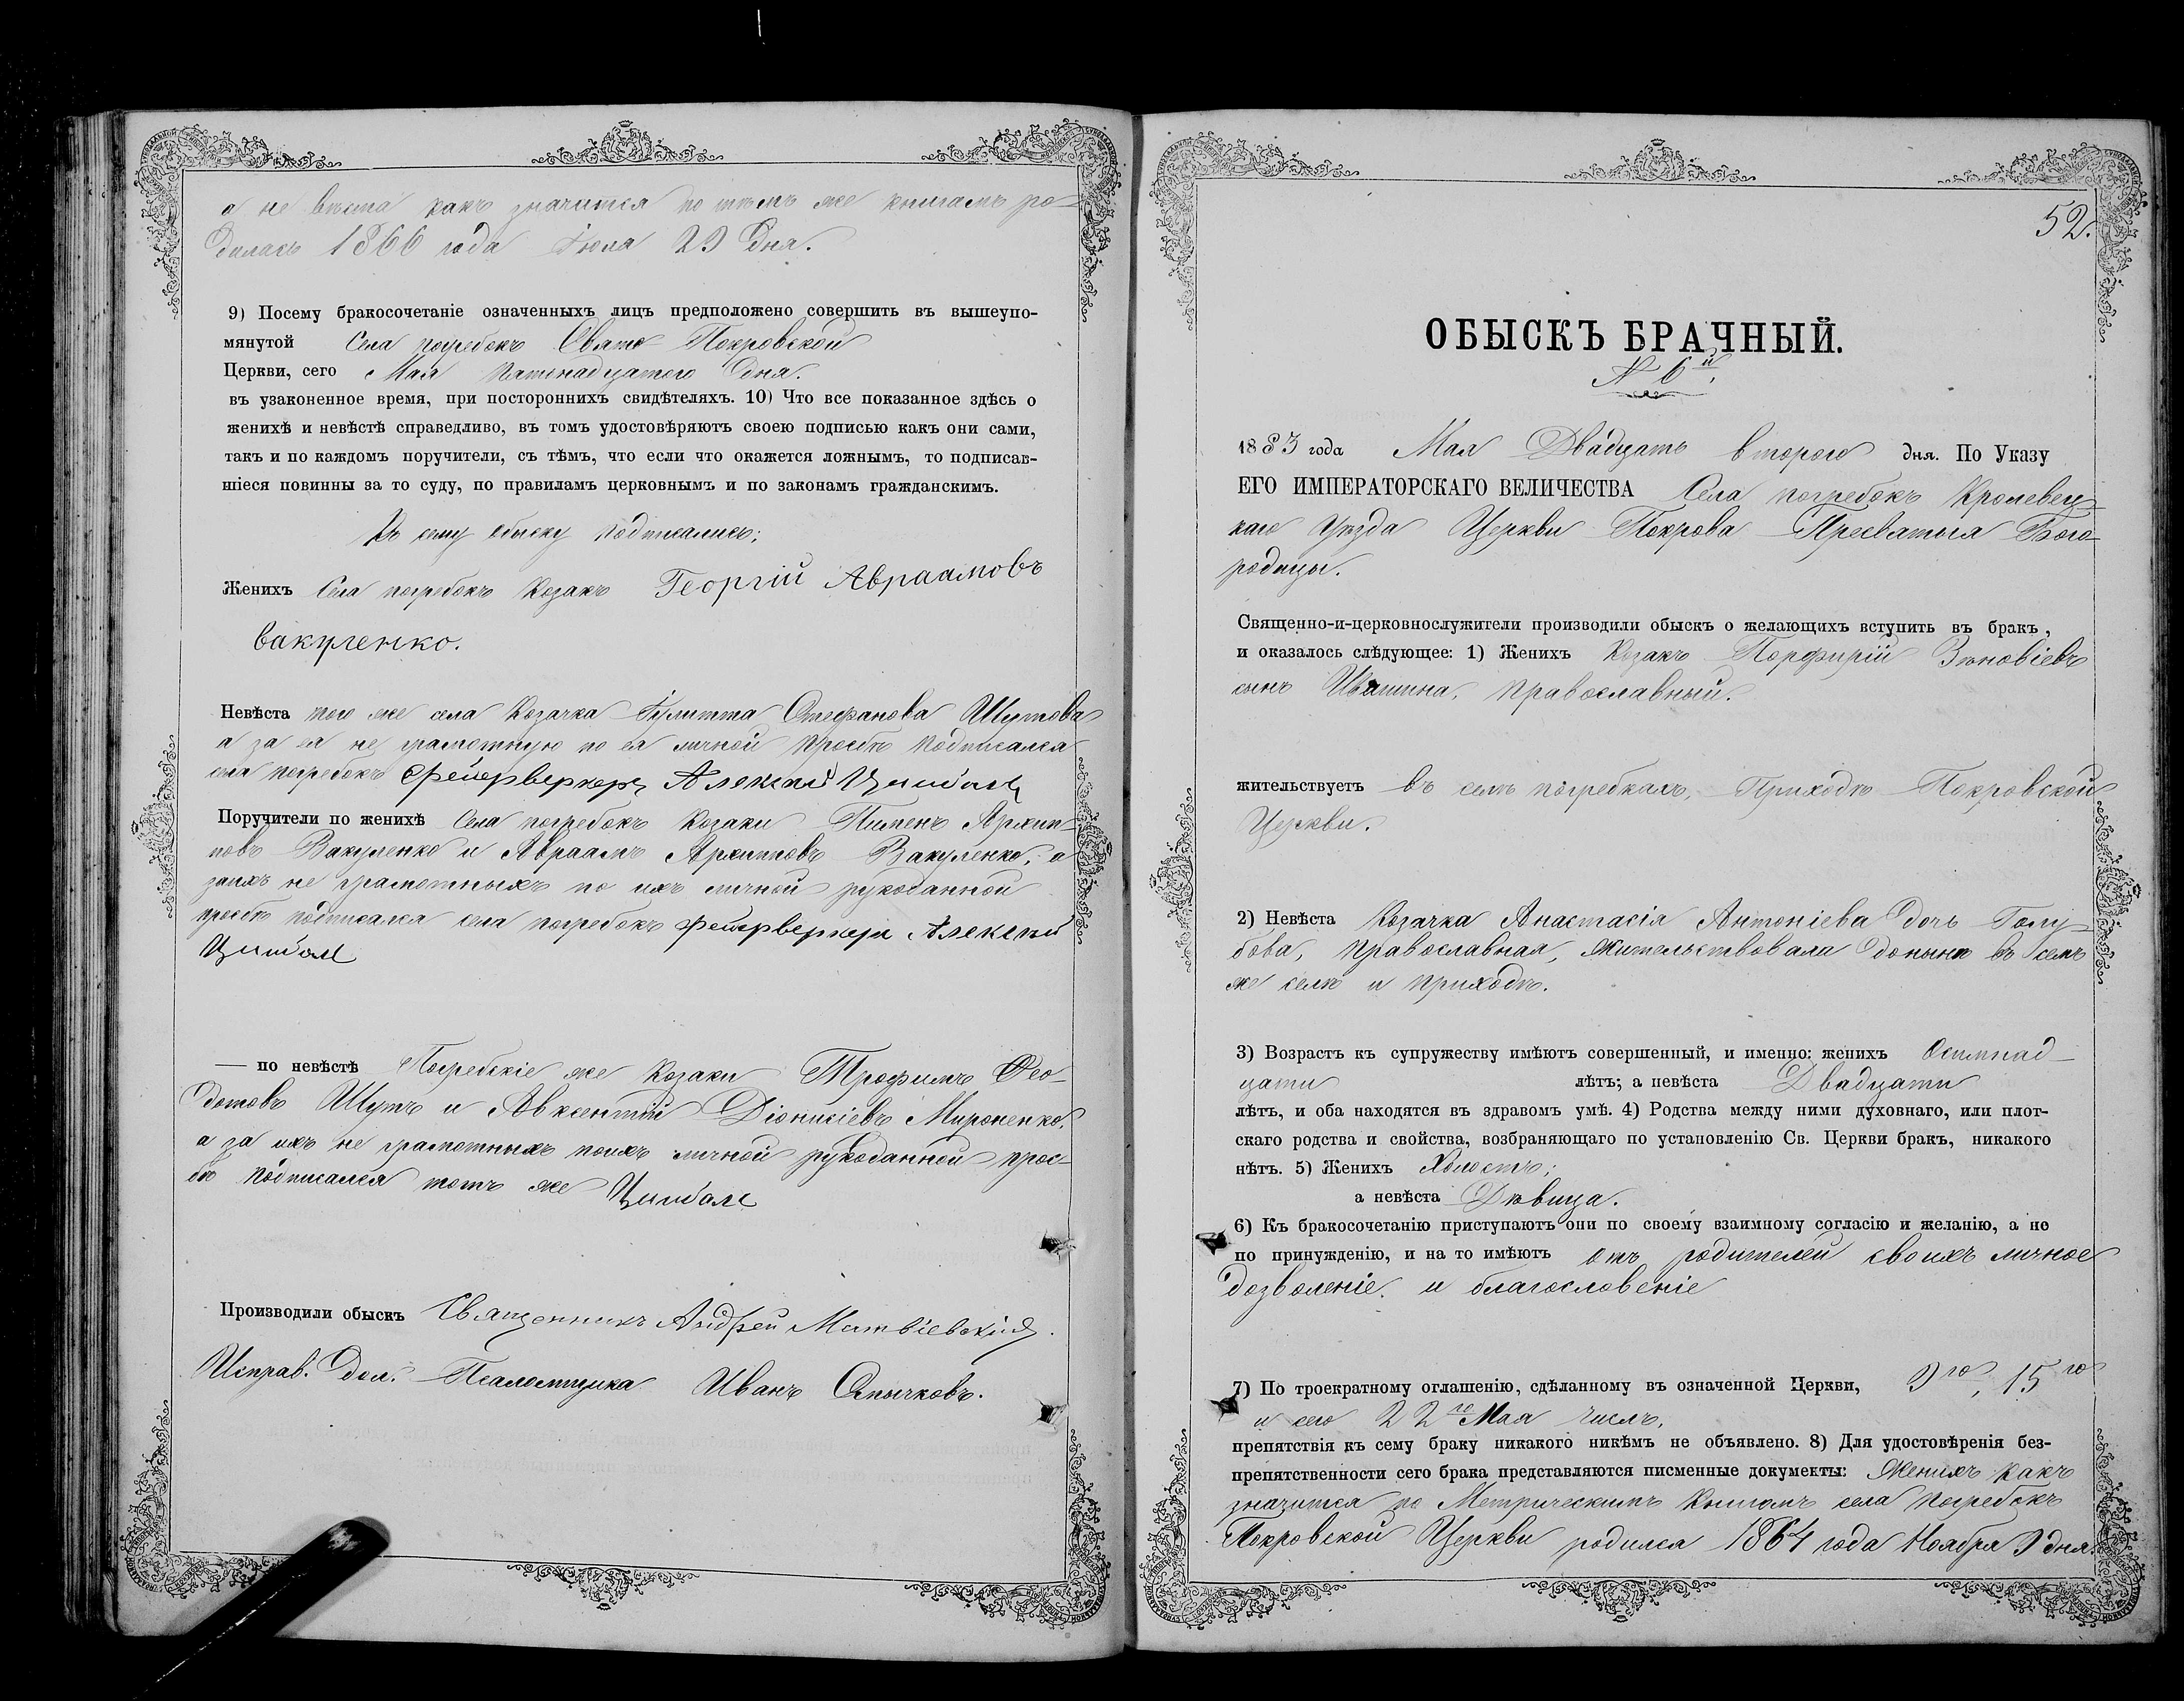 а не вѣста какъ значится по тѣмъ же книгамъ ро-
дилась 1866 года Іюля 29 дня.
9) Посему бракосочетаніе означенныхъ лицъ предположено совершить въ вышеупо-
мянутой Села погребокъ Свято Покровской
Церкви, сего Мая пятнадцатого дня.
въ узаконенное время, при постороннихъ свидѣтеляхъ. 10) Что все показанное здѣсь о
женихѣ и невѣстѣ справедливо, въ томъ удостовѣряютъ своею подписью какъ они сами,
такъ и по каждомъ поручители, съ тѣмъ, что если что окажется ложнымъ, то подписав-
шіеся повинны за то суду, по правиламъ церковнымъ и по законамъ гражданскимъ.
Къ сему обыску подписались:
Женихъ Села погребокъ Козакъ Георгій Авраамовъ
вакуленко.
Невѣста того же села Козачка Іулитта Стефанова Шутова
а за ея не грамотную по ея личной просьбѣ подписался
села погребокъ фейерверкеръ Алексѣй Цимбалъ
Поручители по женихѣ Села погребокъ Козаки Пименъ Архип-
повъ Вакуленко и Авраамъ Архиповъ Вакуленко, а
заихъ не грамотныхъ по ихъ личной рукоданной
просьбѣ подписался села погребокъ фейерверкеръ Алексѣй
Цимбалъ
— по невѣстѣ Погребскіе же Козаки Трофимъ Ѳео-
дотовъ Шутъ и Авксентій Діонисіевъ Мироненко,
а за ихъ не грамотныхъ поихъ личной рукоданной прось-
бѣ подписался тотъ же Цимбалъ
Производили обыскъ Священникъ Андрей Матвіевскій.
Исправ. дол. Псаломщика Иванъ Слычковъ.
52.
ОБЫСКЪ БРАЧНЫЙ.
№ 6й.
1883 года Мая Двадцать второго дня. По Указу
ЕГО ИМПЕРАТОРСКАГО ВЕЛИЧЕСТВА Села погребокъ Кролевец-
каго Уѣзда Церкви Покрова Пресвятыя Бого-
родицы.
Священно-и-церковнослужители производили обыскъ о желающихъ вступить въ бракъ,
и оказалось слѣдующее: 1) Женихъ Козакъ Порфирій Зѣновіевъ
сынъ Ивашина, православный.
жительствуетъ въ селѣ погребкахъ, Приходѣ Покровской
Церкви.
2) Невѣста Козачка Анастасія Антоніева дочь Голу-
бова, православная, жительствовала донынѣ въ семъ
же селѣ и приходѣ.
3) Возрастъ къ супружеству имѣютъ совершенный, и именно: женихъ Осимнад-
цати лѣтъ; а невѣста Двадцати
лѣтъ, и оба находятся въ здравомъ умѣ. 4) Родства между ними духовнаго, или плот-
скаго родства и свойства, возбраняющаго по установленію Св. Церкви бракъ, никакого
нѣтъ. 5) Женихъ Холостъ;
а невѣста Дѣвица.
6) Къ бракосочетанію приступаютъ они по своему взаимному согласію и желанію, а не
по принужденію, и на то имѣютъ отъ родителей своихъ личное
дозволеніе. и благословеніе
7) По троекратному оглашенію, сдѣланному въ означенной Церкви, 9го, 15го
и сего 22го Мая числъ,
препятствія къ сему браку никакого никѣмъ не объявлено. 8) Для удостовѣренія без-
препятственности сего брака представляются писменные документы: Женихъ какъ
значится по Метрическимъ Книгамъ села погребокъ
Покровской Церкви родился 1864 года Ноября 9 дня.